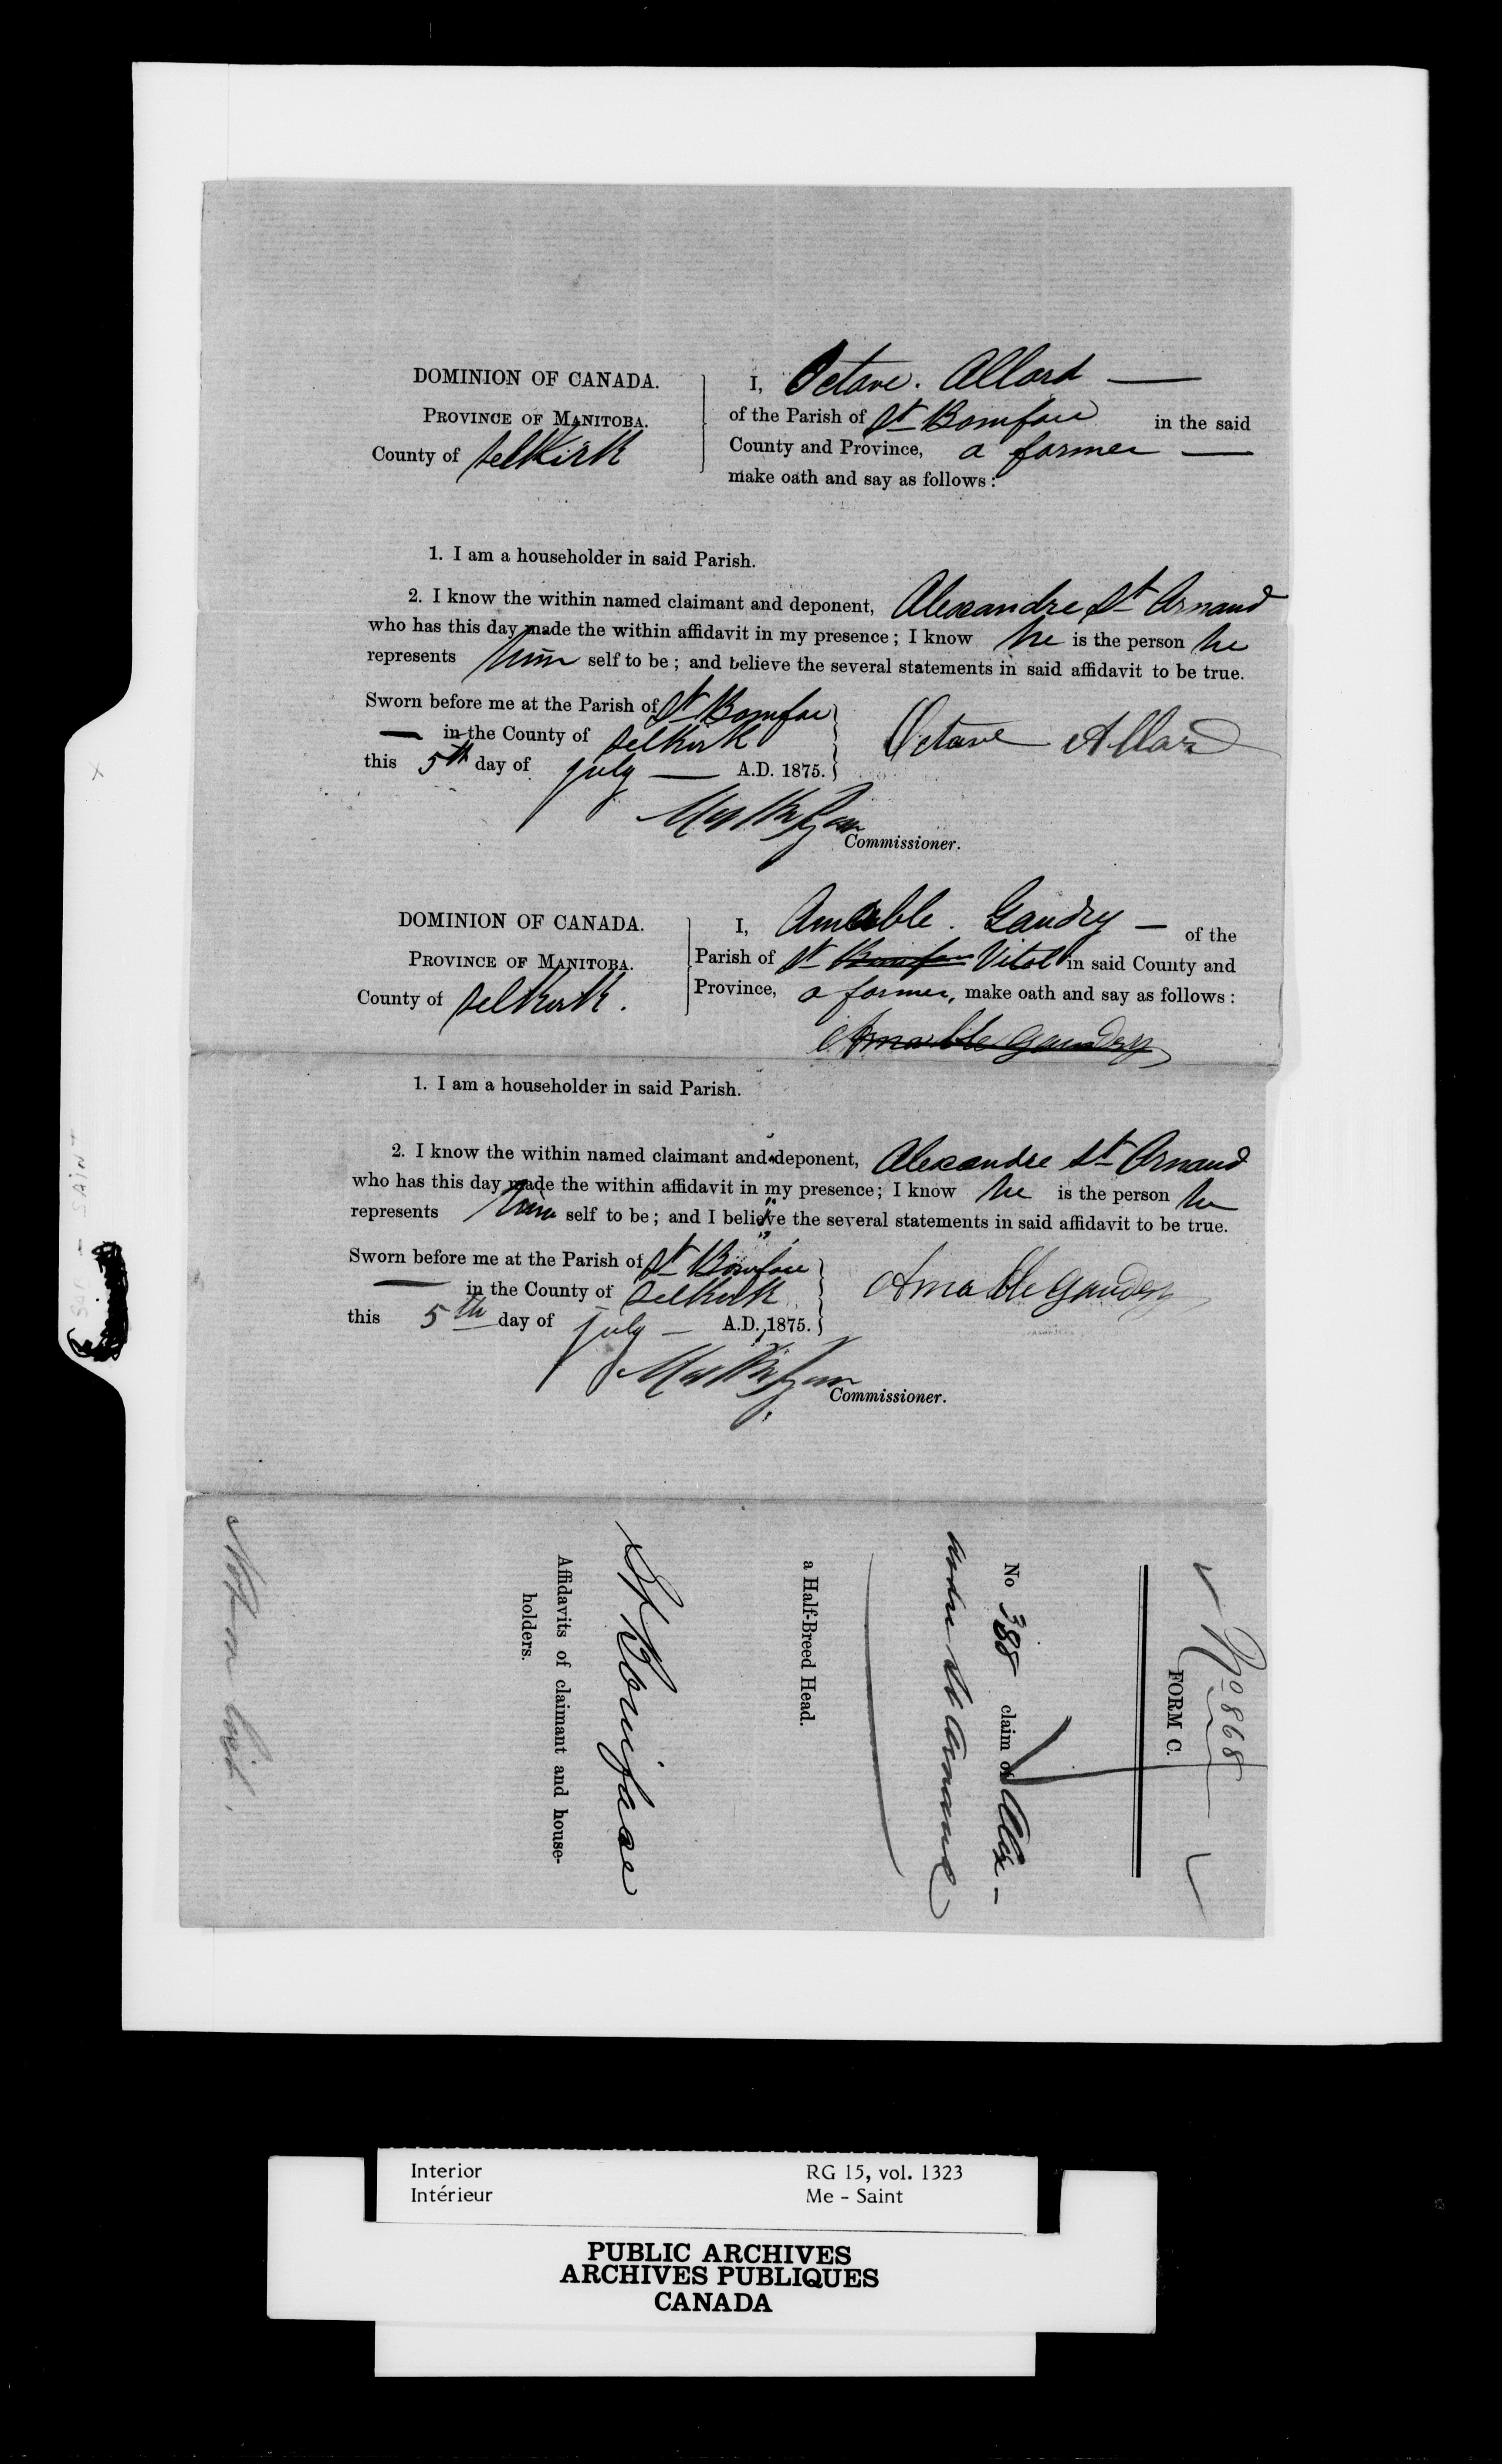 DOMINION OF CANADA.
PROVINCE OF MANITOBA.
County of Selkirk
I, Octave. Allard —
of the Parish of St Boniface in the said
County and Province, a farmer —
make oath and say as follows:
1. I am a householder in said Parish.
2. I know the within named claimant and deponent, Alexandre St Arnaud
who has this day made the within affidavit in my presence; I know he is the person he
represents him self to be; and believe the several statements in said affidavit to be true.
Sworn before me at the Parish of St Boniface
— in the County of Selkirk
this 5th day of July — A.D. 1875.
Octave Allard
Commissioner.
DOMINION OF CANADA.
PROVINCE OF MANITOBA.
County of Selkirk.
I, Amable. Gaudry — of the
Parish of St Boniface Vital in said County and
Province, a farmer, make oath and say as follows:
Amable Gaudry
1. I am a householder in said Parish.
2. I know the within named claimant and deponent, Alexandre St Arnaud
who has this day made the within affidavit in my presence; I know he is the person he
represents him self to be; and I believe the several statements in said affidavit to be true.
Sworn before me at the Parish of St Boniface
— in the County of Selkirk
this 5th day of July — A.D. 1875.
Amable Gaudry
Commissioner.
No 868
FORM C.
No 388 claim of Alex-
andre St Arnaud
a Half-Breed Head.
St Boniface
Affidavits of claimant and house-
holders.
SAINT
Interior
Intérieur
RG 15, vol. 1323
Me - Saint
PUBLIC ARCHIVES
ARCHIVES PUBLIQUES
CANADA